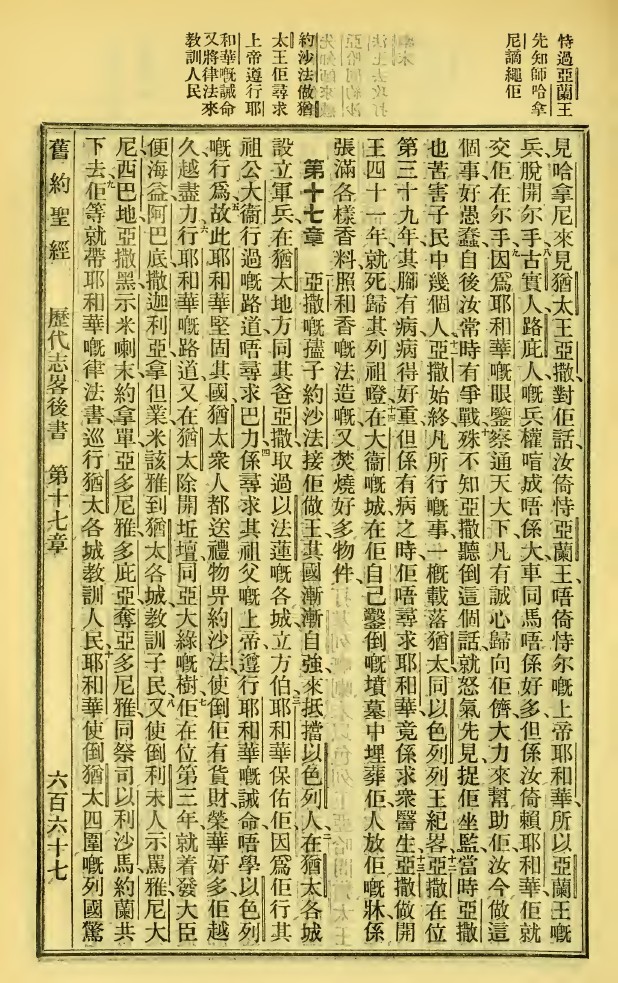 恃過亞蘭王
先知師哈拿
尼譎繩佢
約沙法做猶
太王佢尋求
上帝遵行耶
和華嘅誡命
又將律法來
教訓人民
見哈拿尼來見猶太王亞撒對佢話汝倚恃亞蘭王唔倚恃尔嘅上帝耶和華所以亞蘭王嘅
兵脫開尔手八古實人路庇人嘅兵權唷成唔係大車同馬唔係好多但係汝倚賴耶和華佢就
交佢在尔手九因爲耶和華嘅眼鑒察通天大下凡有誠心歸向佢儕大力來幫助佢汝今做這
個事好愚蠢自後汝常時有爭戰殊不知十亞撒聽倒這個話就怒氣先見捉佢坐監當時亞撒
也苦害子民中幾個人十一亞撒始終凡所行嘅事一概載落猶太同以色列列王紀畧十二亞撒在位
第三十九年其腳有病病得好重但係有病之時佢唔尋求耶和華竟係求衆醫生十三亞撒做開
王四十一年就死歸其列祖十四瞪在大衞嘅城在佢自己鑿倒嘅墳墓中埋葬佢人放佢嘅牀係
張滿各樣香料照和香嘅法造嘅又焚燒好多物件
第十七章 一亞撒嘅㩑子約沙法接佢做王其國漸漸自強來抵擋以色列人二在猶太各城
設立軍兵在猶太地方同其爸亞撒取過以法蓮嘅各城立方伯三耶和華保佑佢因爲佢行其
祖公大衞行過嘅路道唔尋求巴力四係尋求其祖父嘅上帝遵行耶和華嘅誡命唔學以色列
嘅行爲五故此耶和華堅固其國猶太衆人都送禮物畀約沙法使倒佢有貨財榮華好多六佢越
久越盡力行耶和華嘅路道又在猶太除開坵壇同亞大綠嘅樹七佢在位第三年就着發大臣
便海益阿巴底撒迦利亞拿但業米該雅到猶太各城教訓子民八又使倒利未人示罵雅尼大
尼西巴地亞撒黑示米喇末約拿單亞多尼雅多庇亞奪亞多尼雅同祭司以利沙馬約蘭共
下去九佢等就帶耶和華嘅律法書巡行猶太各城教訓人民十耶和華使倒猶太四圍嘅列國驚
舊約聖經 歷代志畧後書 第十七章 六百六十七